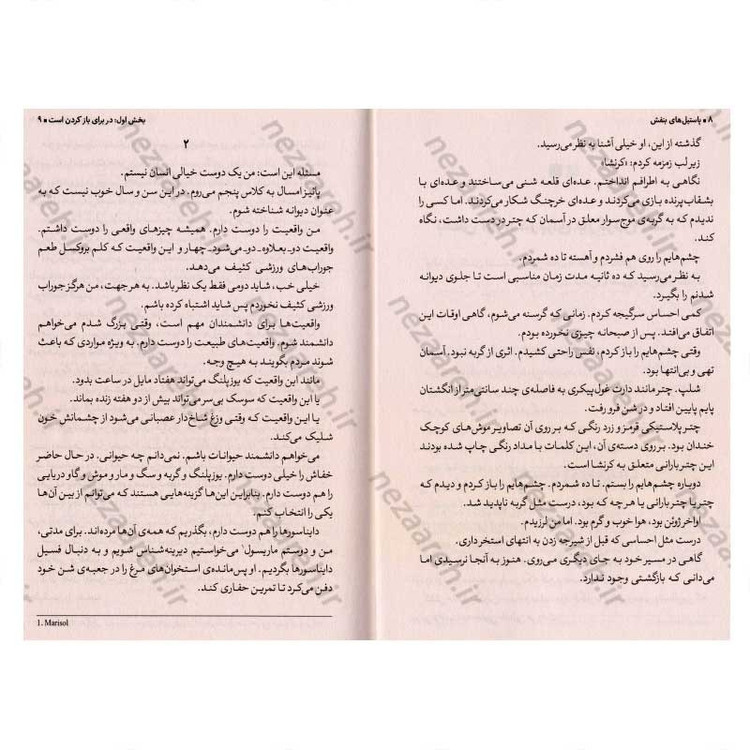 ۸ ■ پاستیل‌های بنفش
گذشته از این، او خیلی آشنا به نظر می‌رسید.
زیر لب زمزمه کردم: «کرنشا»
نگاهی به اطرافم انداختم. عده‌ای قلعه شنی می‌ساختند و عده‌ای با
بشقاب‌پرنده بازی می‌کردند و عده‌ای خرچنگ شکار می‌کردند. اما کسی را
ندیدم که به گربه‌ی موج‌سوار معلق در آسمان که چتر در دست داشت، نگاه
کند.
چشم‌هایم را روی هم فشردم و آهسته تا ده شمردم.
به نظر می‌رسید که ده ثانیه مدت زمان مناسبی است تا جلوی دیوانه
شدنم را بگیرد.
کمی احساس سرگیجه کردم. زمانی که گرسنه می‌شوم، گاهی اوقات این
اتفاق می‌افتد. پس از صبحانه چیزی نخورده بودم.
وقتی چشم‌هایم را باز کردم، نفس راحتی کشیدم. اثری از گربه نبود. آسمان
تهی و بی‌انتها بود.
شلپ. چتر مانند دارت غول‌پیکری به فاصله‌ی چند سانتی‌متر از انگشتان
پایم پایین افتاد و در شن فرو رفت.
چتر پلاستیکی قرمز و زرد رنگی که بر روی آن تصاویر موش‌های کوچک
خندان بود. بر روی دسته‌ی آن، این کلمات با مداد رنگی چاپ شده بودند
این چتر بارانی متعلق به کرنشا است.
دوباره چشم‌هایم را بستم. تا ده شمردم. چشم‌هایم را باز کردم و دیدم که
چتر یا چتر بارانی یا هر چه که بود، درست مثل گربه ناپدید شد.
اواخر ژوئن بود، هوا خوب و گرم بود. اما من لرزیدم.
درست مثل احساسی که قبل از شیرجه زدن به انتهای استخر داری.
گاهی در مسیر خود به جای دیگری می‌روی. هنوز به آنجا نرسیدی اما
می‌دانی که بازگشتی وجود ندارد.
بخش اول: در برای باز کردن است ■ ۹
۲
مسئله این است: من یک دوست خیالی انسان نیستم.
پائیز امسال به کلاس پنجم می‌روم. در این سن و سال خوب نیست که به
عنوان دیوانه شناخته شوم.
من واقعیت را دوست دارم. همیشه چیزهای واقعی را دوست داشتم.
واقعیت دو-بعلاوه-دو-می‌شود-چهار و این واقعیت که کلم بروکسل طعم
جوراب‌های ورزشی کثیف می‌دهد.
خیلی خب، شاید دومی فقط یک نظر باشد. به هر جهت، من هرگز جوراب
ورزشی کثیف نخوردم پس شاید اشتباه کرده باشم.
واقعیت‌ها برای دانشمندان مهم است، وقتی بزرگ شدم می‌خواهم
دانشمند شوم. واقعیت‌های طبیعت را دوست دارم. به ویژه مواردی که باعث
شوند مردم بگویند به هیچ وجه.
مانند این واقعیت که یوزپلنگ می‌تواند هفتاد مایل در ساعت بدود.
یا این واقعیت که سوسک بی‌سر می‌تواند بیش از دو هفته زنده بماند.
یا این واقعیت که وقتی وزغ شاخ‌دار عصبانی می‌شود از چشمانش خون
شلیک می‌کند.
می‌خواهم دانشمند حیوانات باشم. نمی‌دانم چه حیوانی. در حال حاضر
خفاش را خیلی دوست دارم. یوزپلنگ و گربه و سگ و مار و موش و گاو دریایی
را هم دوست دارم. بنابراین این‌ها گزینه‌هایی هستند که می‌توانم از بین آن‌ها
یکی را انتخاب کنم.
دایناسورها را هم دوست دارم، بگذریم که همه‌ی آن‌ها مرده‌اند. برای مدتی،
من و دوستم ماریسول¹ می‌خواستیم دیرینه‌شناس شویم و به دنبال فسیل
دایناسورها بگردیم. او پس‌مانده‌ی استخوان‌های مرغ را در جعبه‌ی شن خود
دفن می‌کرد تا تمرین حفاری کند.
1. Marisol
nezaareh.ir